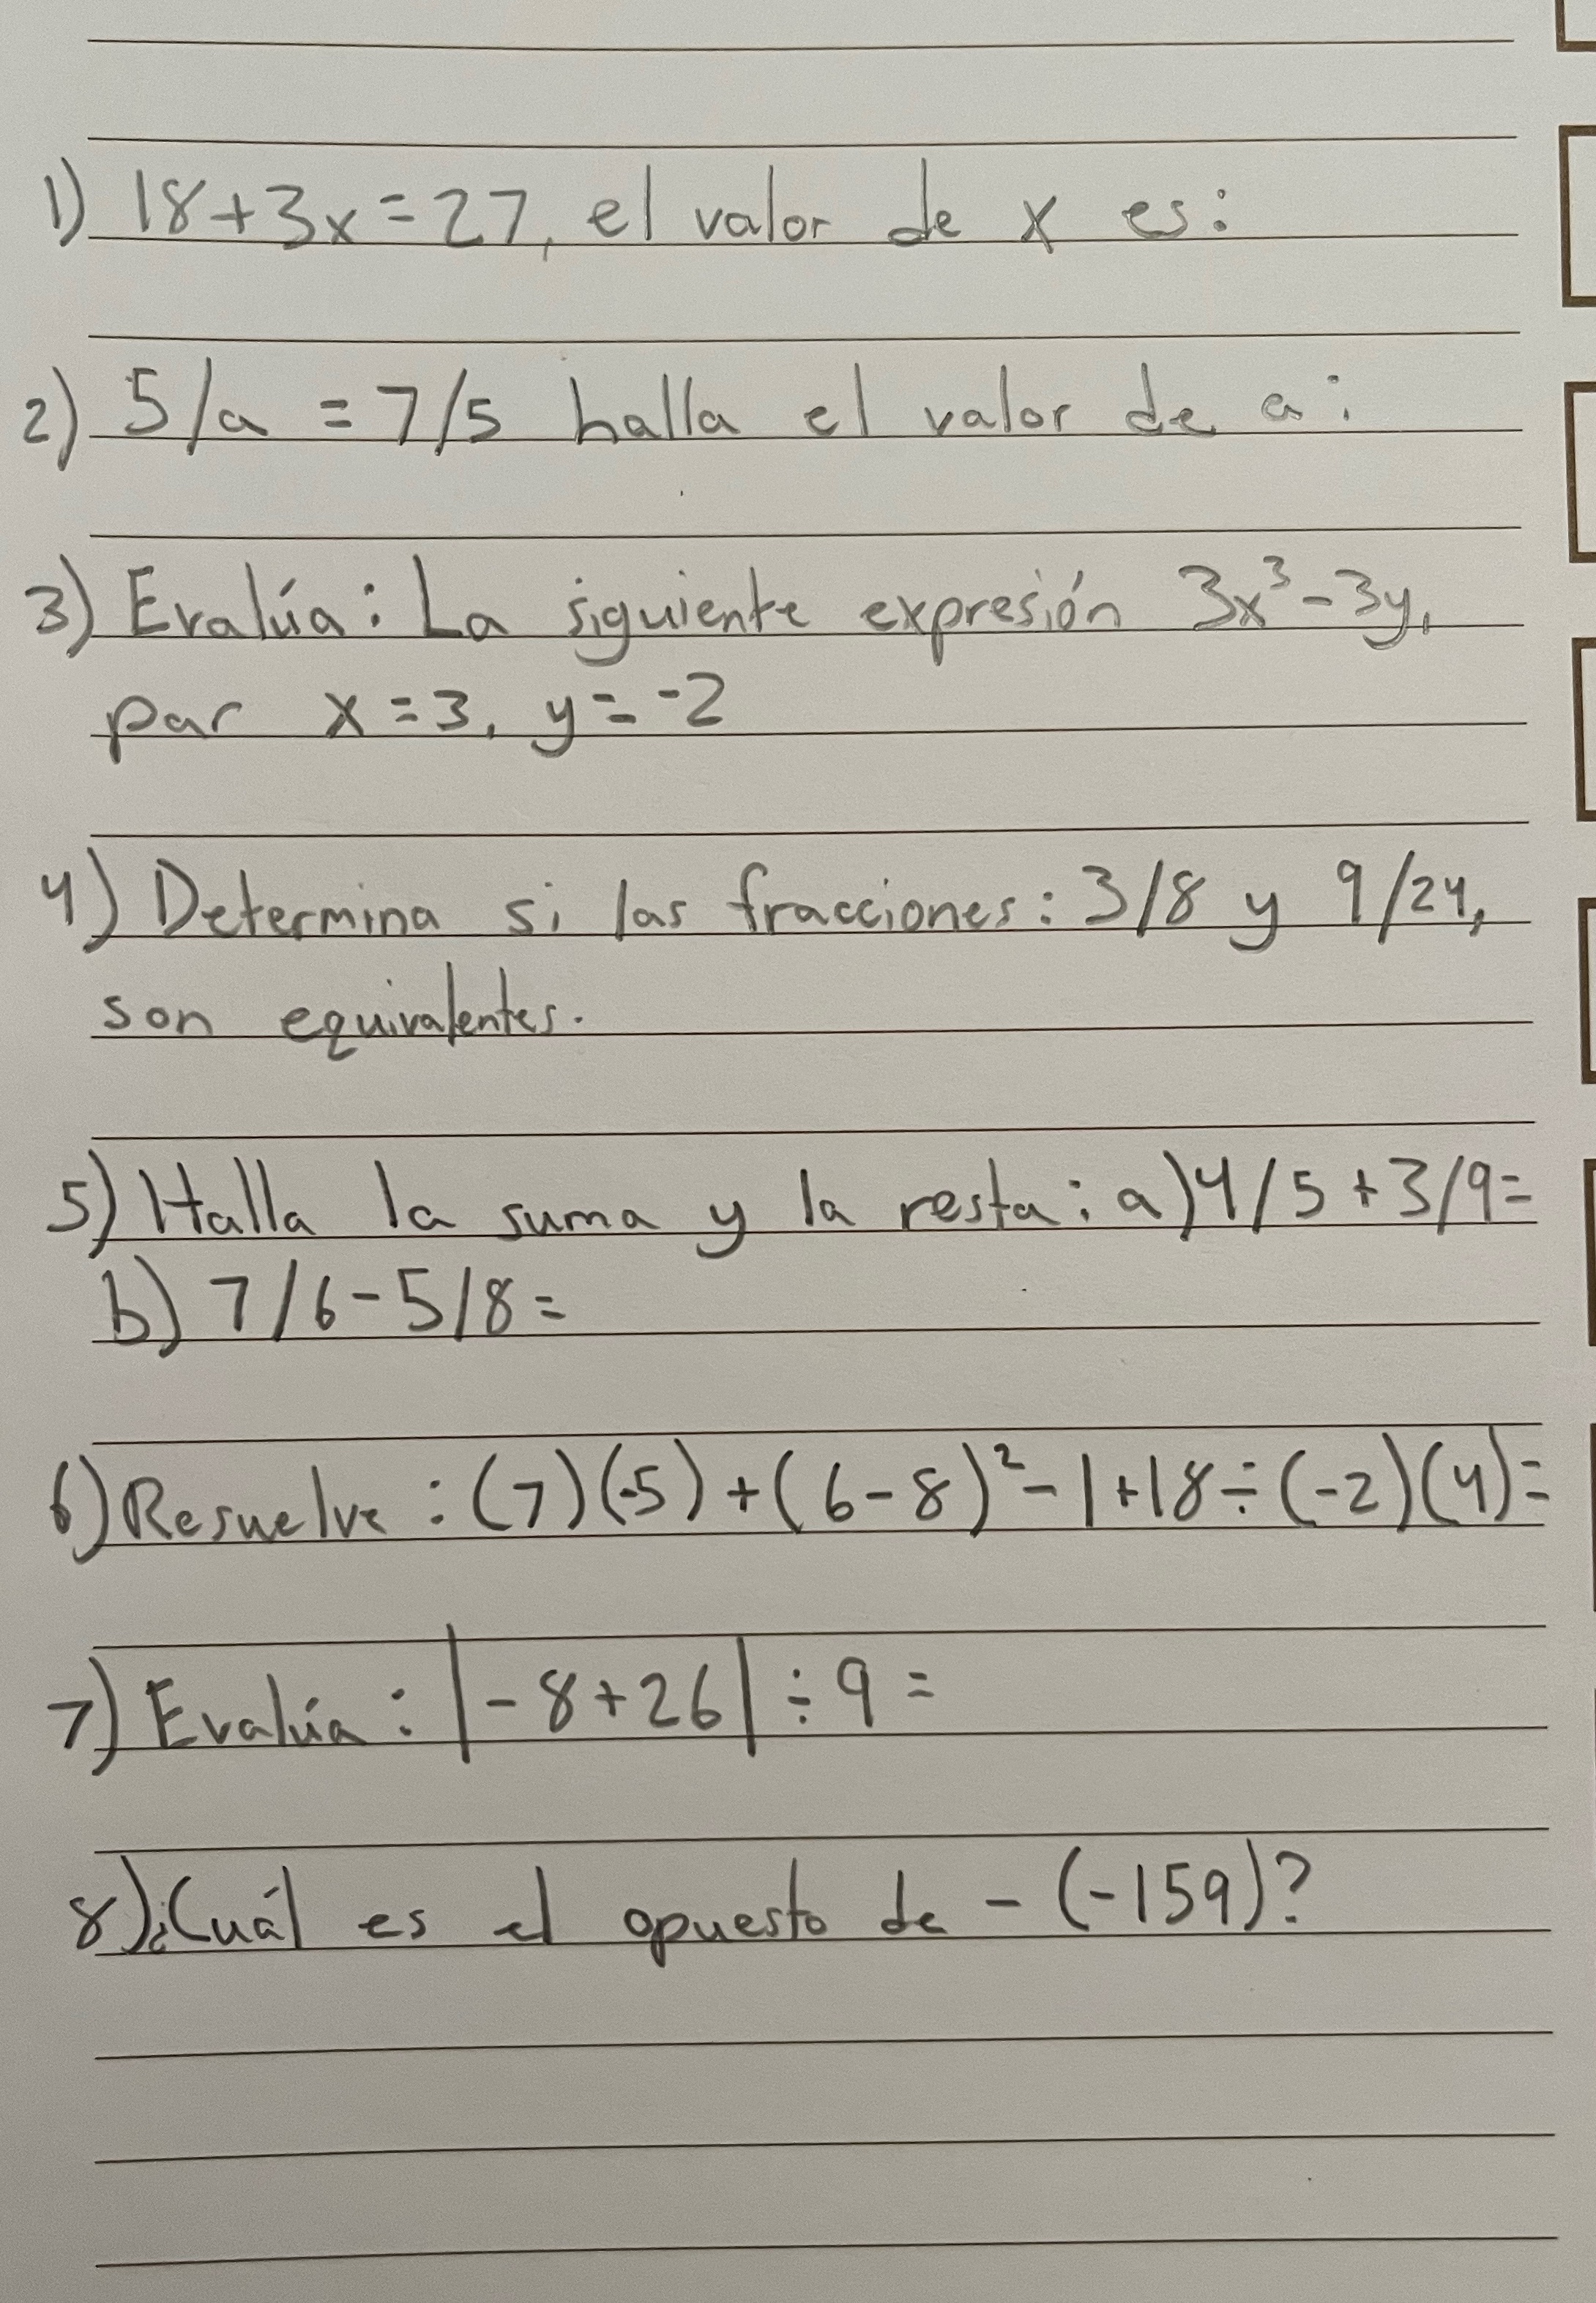 1) 18+3x=27, el valor de x es:
2) 5/a = 7/5 halla el valor de a:
3) Evalúa: La siguiente expresión 3x³-3y,
par x=3, y=-2
4) Determina si las fracciones: 3/8 y 9/24,
son equivalentes.
5) Halla la suma y la resta: a) 4/5+3/9=
b) 7/6-5/8=
6) Resuelve: (7)(-5)+(6-8)²-1+18÷(-2)(4)=
7) Evalúa: |-8+26|÷9=
8) ¿Cuál es el opuesto de -(-159)?